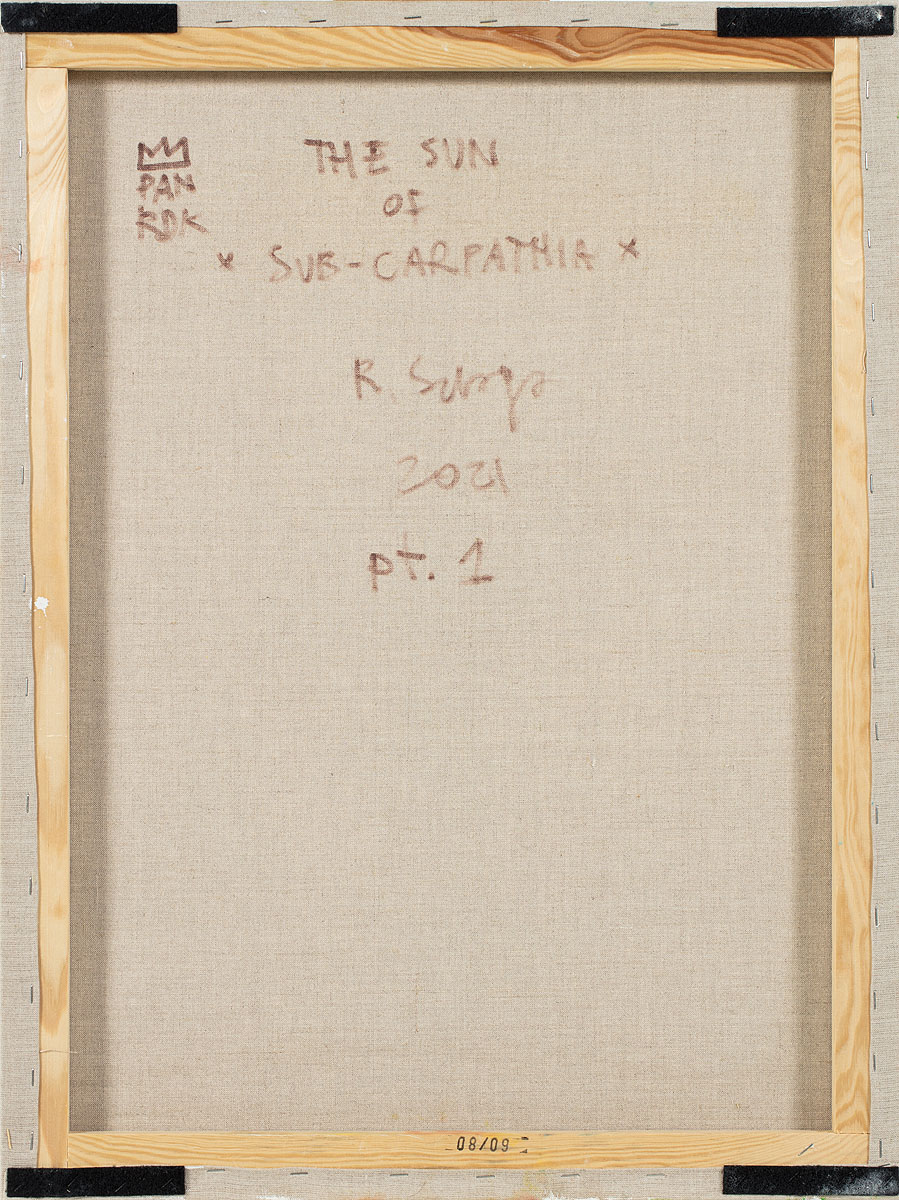 PAN
RDK
THE SUN
OF
x SUB-CARPATHIA x
R.
2021
pt. 1
08/09